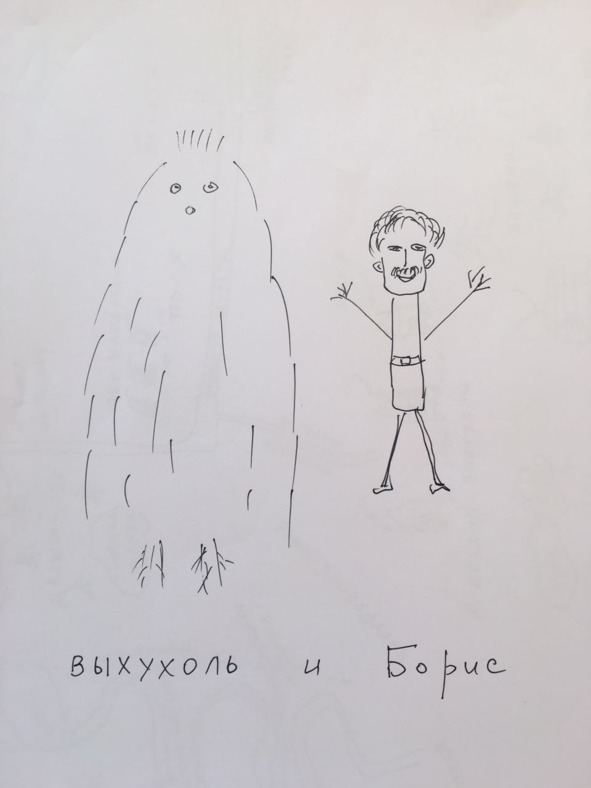 выхухоль и Борис